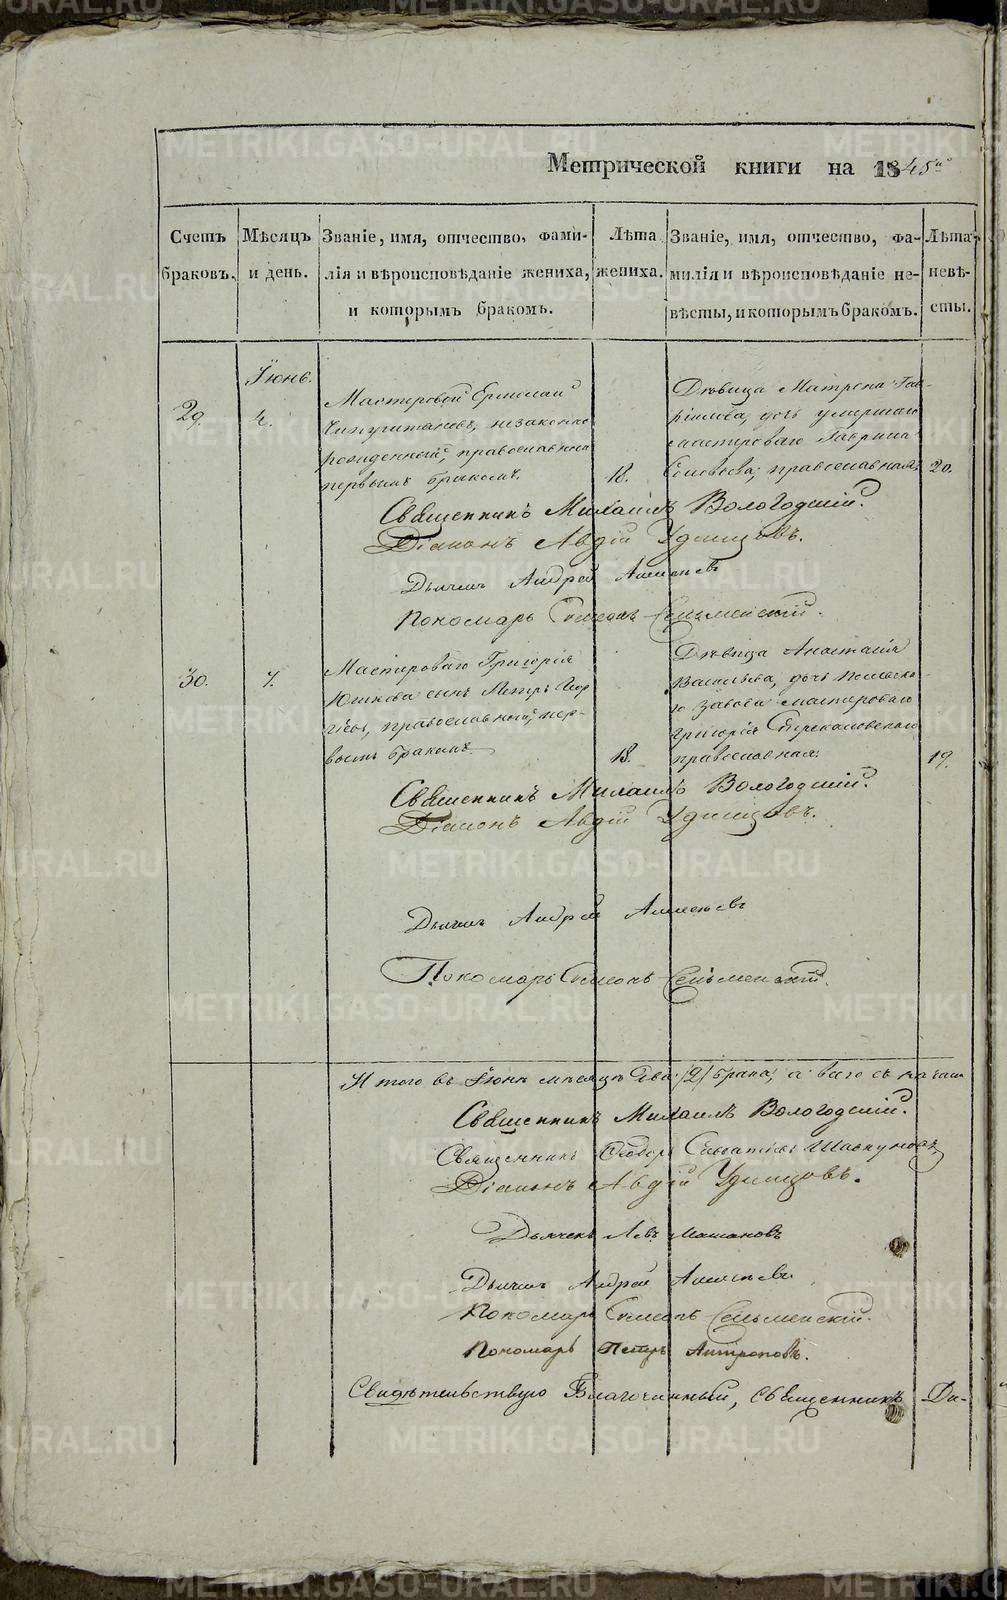 Метрической книги на 1845й
Счетъ браковъ.
Мѣсяцъ и день.
Званіе, имя, отчество, фами-
лія и вѣроисповѣданіе жениха,
и которымъ бракомъ.
Лѣта жениха.
Званіе, имя, отчество, фа-
милія и вѣроисповѣданіе не-
вѣсты, и которымъ бракомъ.
Лѣта невѣ-
сты.
Іюнь.
29.
4.
Мастеровой Ермолай
незаконно
рожденный, православнаго
первымъ бракомъ.
18.
Дѣвица Матрона Гав-
рилова, дочь умершаго
мастероваго Гаврила
православная,
20.
Священникъ Михаилъ Вологодскій.
Діаконъ Авдій Удинцовъ.
Дьячекъ Андрей
Пономарь Симеонъ Сельменскій.
30.
7.
Мастероваго Григорія
сынъ Петръ
православный, пер-
вымъ бракомъ
18.
Дѣвица Анастасія
Васильева, дочь
го завода мастероваго
Григорія
православная.
19.
Священникъ Михаилъ Вологодскій.
Діаконъ Авдій Удинцовъ.
Дьячекъ Андрей
Пономарь Симеонъ Сельменскій.
Итого въ Іюнѣ мѣсяцѣ два /2/ брака, а всего съ начала
Священникъ Михаилъ Вологодскій.
Священникъ Ѳеодоръ Савватіевъ Шавкуновъ
Діаконъ Авдій Удинцовъ.
Дьячекъ Левъ
Дьячекъ Андрей
Пономарь Симеонъ Сельменскій.
Пономарь Петръ Антроповъ.
Свидѣтельствую Благочинный, священникъ Ди-
METRIKI.GASO-URAL.RU